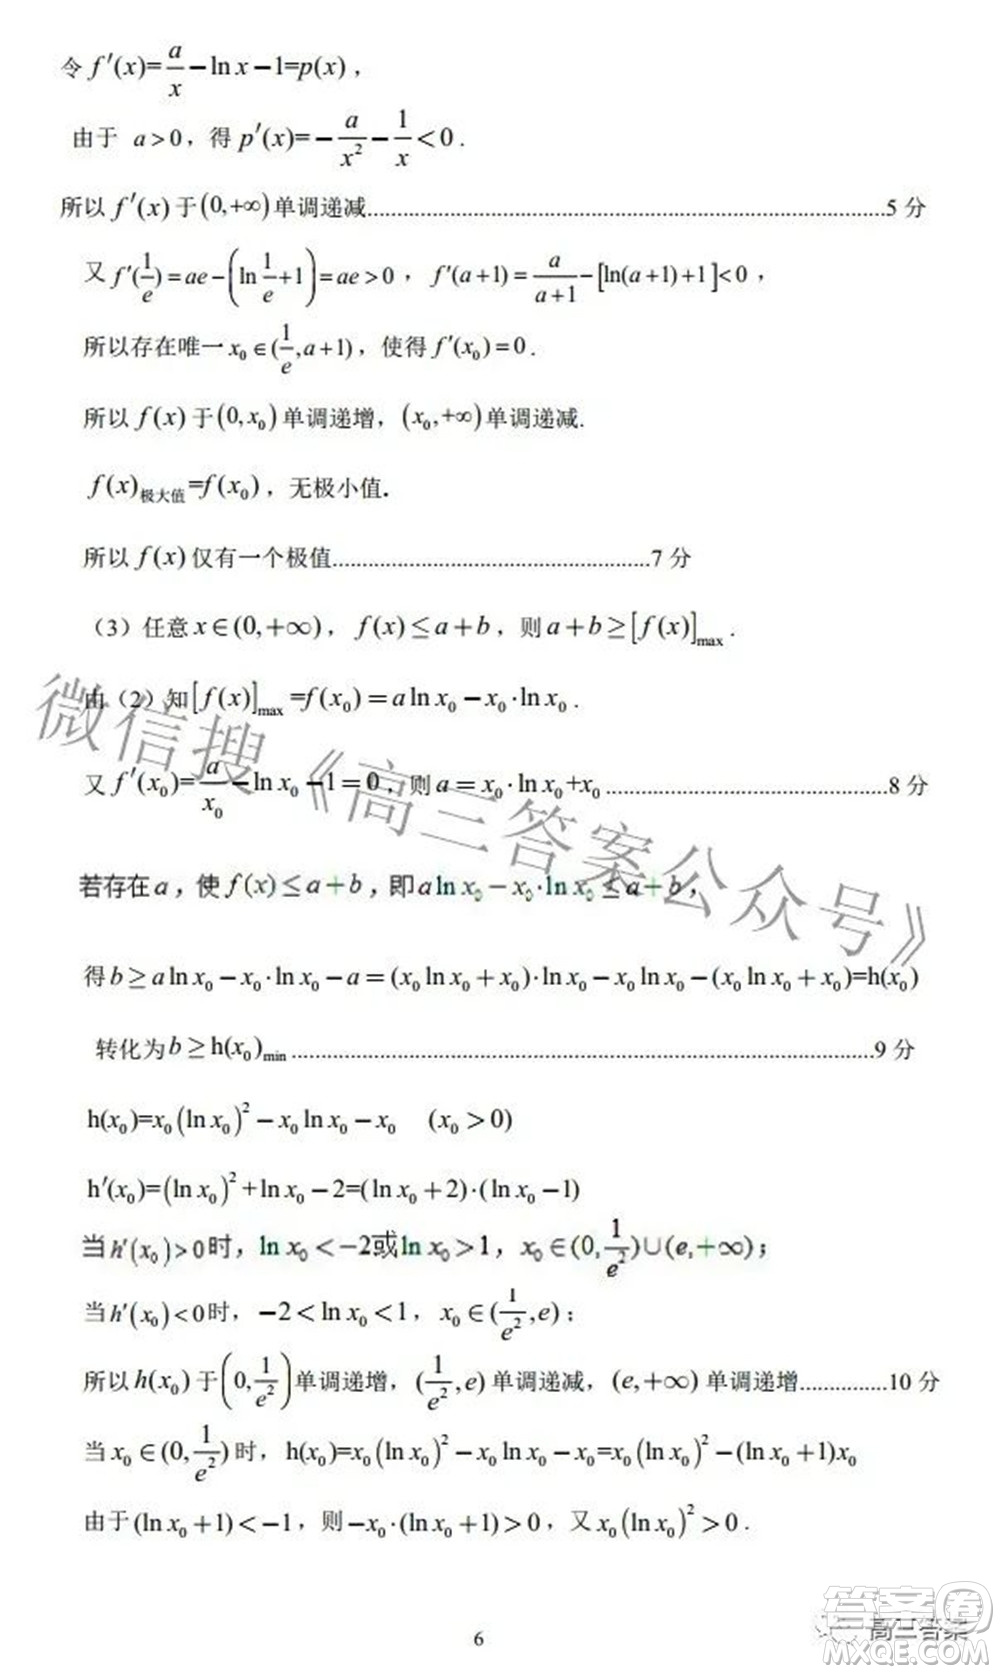 令 f′(x)=a/x−ln x−1=p(x)，
由于 a>0，得 p′(x)=−a/x²−1/x<0.
所以 f′(x) 于(0,+∞)单调递减......................................................................................5 分
又 f′(1/e)=ae−(ln 1/e+1)=ae>0，f′(a+1)=a/(a+1)−[ln(a+1)+1]<0，
所以存在唯一 x₀∈(1/e,a+1)，使得 f′(x₀)=0.
所以 f(x) 于(0,x₀)单调递增，(x₀,+∞)单调递减.
f(x)极大值=f(x₀)，无极小值.
所以 f(x) 仅有一个极值.....................................................7 分
（3）任意 x∈(0,+∞)，f(x)≤a+b，则 a+b≥[f(x)]max.
由（2）知[f(x)]max=f(x₀)=a ln x₀−x₀·ln x₀.
又 f′(x₀)=a/x₀−ln x₀−1=0，则 a=x₀·ln x₀+x₀...............................................8 分
若存在 a，使 f(x)≤a+b，即 a ln x₀−x₀·ln x₀≤a+b，
得 b≥a ln x₀−x₀·ln x₀−a=(x₀ ln x₀+x₀)·ln x₀−x₀ ln x₀−(x₀ ln x₀+x₀)=h(x₀)
转化为 b≥h(x₀)min.................................................................................................9 分
h(x₀)=x₀(ln x₀)²−x₀ ln x₀−x₀ (x₀>0)
h′(x₀)=(ln x₀)²+ln x₀−2=(ln x₀+2)·(ln x₀−1)
当 h′(x₀)>0 时，ln x₀<−2或ln x₀>1，x₀∈(0,1/e²)∪(e,+∞)；
当 h′(x₀)<0 时，−2<ln x₀<1，x₀∈(1/e²,e)；
所以 h(x₀) 于(0,1/e²)单调递增，(1/e²,e) 单调递减，(e,+∞) 单调递增...............10 分
当 x₀∈(0,1/e²) 时，h(x₀)=x₀(ln x₀)²−x₀ ln x₀−x₀=x₀(ln x₀)²−(ln x₀+1)x₀
由于 (ln x₀+1)<−1，则−x₀·(ln x₀+1)>0，又 x₀(ln x₀)²>0.
6
微信搜《高三答案公众号》
答案卷
高三答案